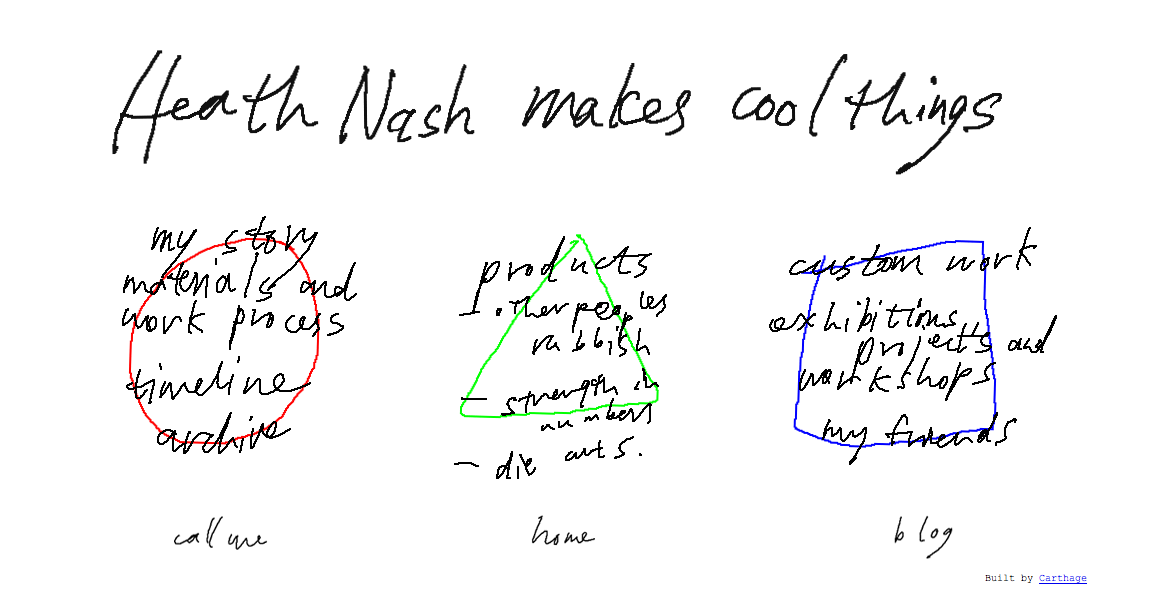 Heath Nash makes cool things
my story
materials and
work process
timeline
archive
products
- other peoples
rubbish
- strength in
numbers
- die cuts.
custom work
exhibitions
projects and
workshops
my friends
call me
home
blog
Built by Carthage